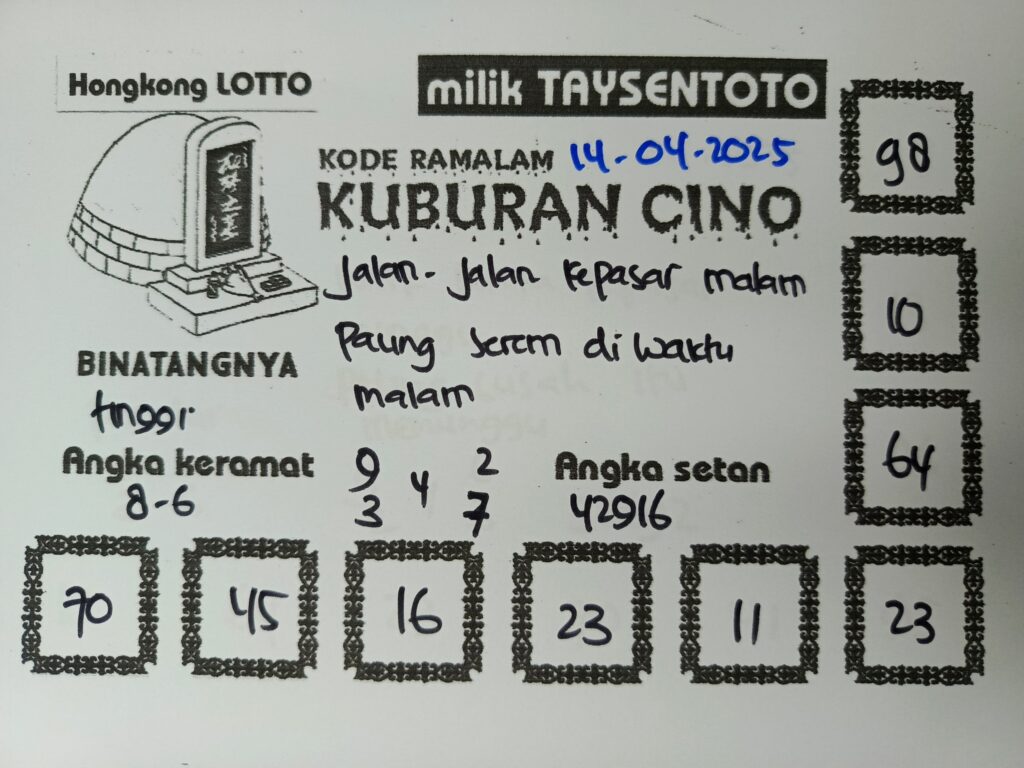 Hongkong LOTTO
milik TAYSENTOTO
KODE RAMALAM 14-04-2025
KUBURAN CINO
Jalan-Jalan kepasar malam
Paung serem di waktu
malam
BINATANGNYA
tinggi
Angka keramat
8-6
9 2
4
3 7
Angka setan
42916
98
10
64
70 45 16 23 11 23